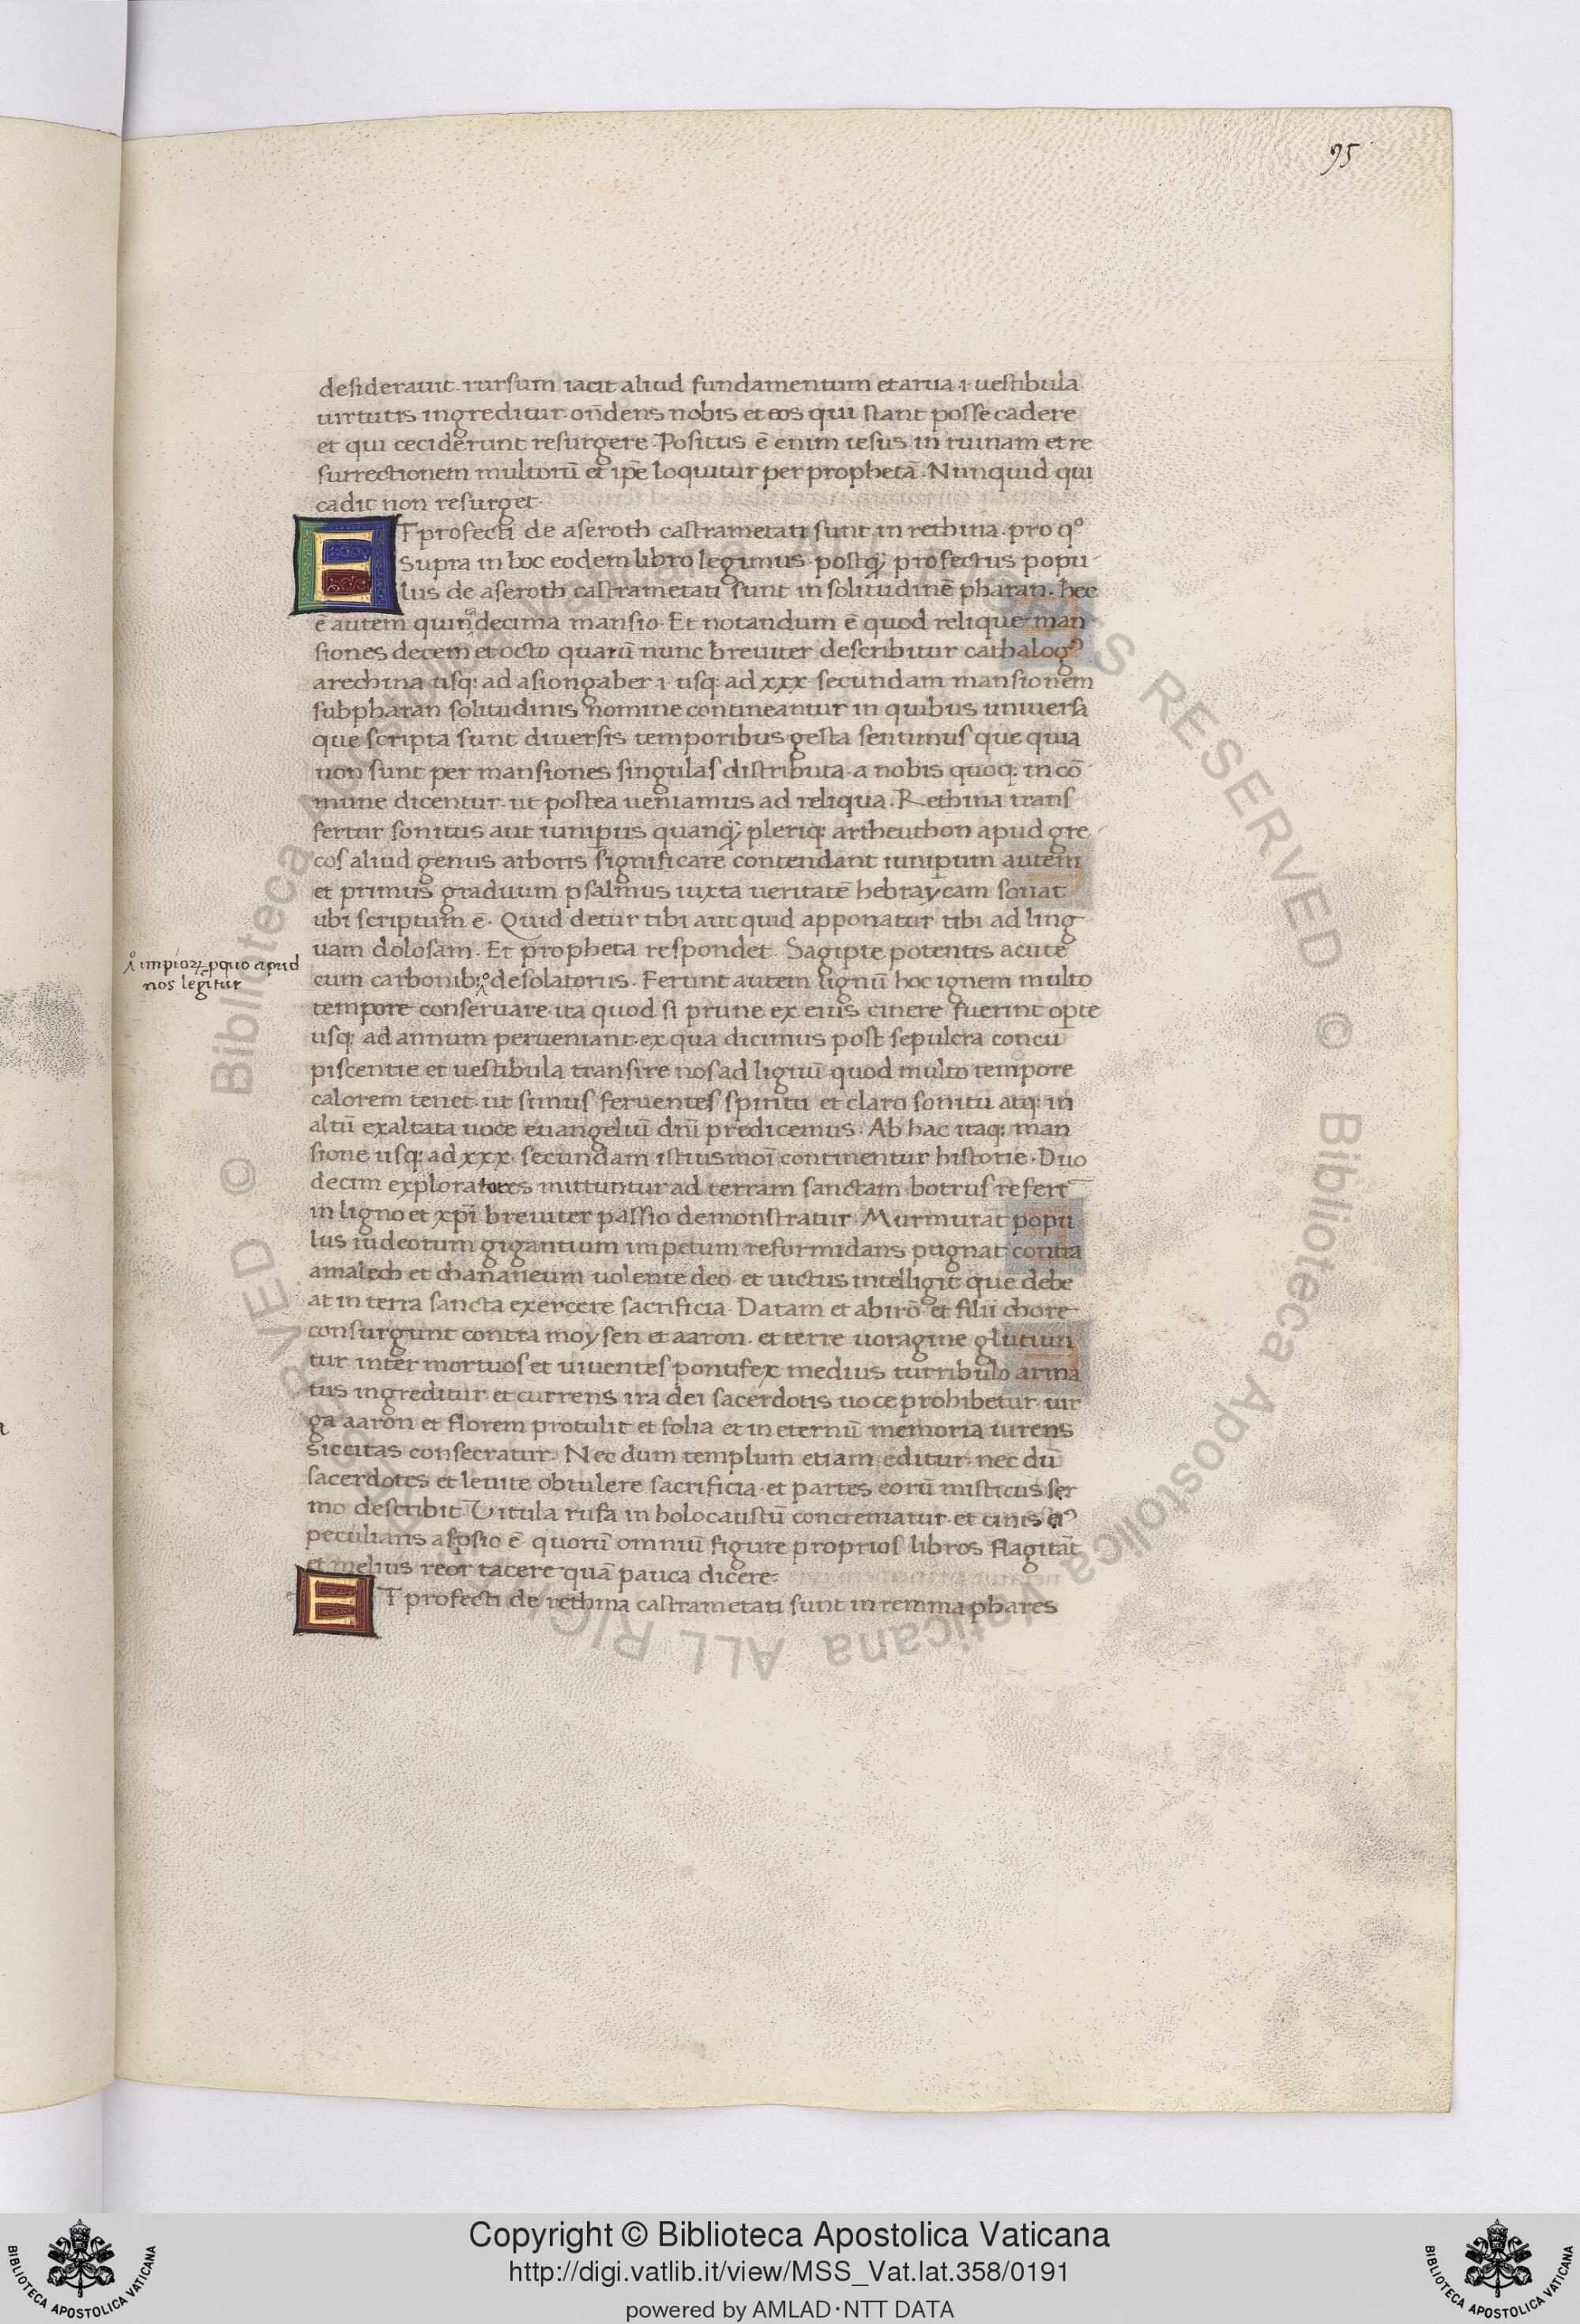 95
desiderauit. rursum iacit aliud fundamentum et arua .i. uestibula
uirtutis ingreditur. on̄dens nobis et eos qui stant posse cadere
et qui ceciderunt resurgere. Positus ē enim iesus in ruinam et re
surrectionem multorū et ip̄e loquitur per prophetā. Nunquid qui
cadit non resurget.
ET profecti de aseroth castrametati sunt in rethma. pro qº
Supra in hoc eodem libro legimus. postq̃ profectus popu
lus de aseroth castrametati sunt in solitudinē pharan. hec
ē autem quindecima mansio. Et notandum ē quod relique man
siones decem et octo quarū nunc breuiter describitur cathalogꝰ
a rechma usq: ad asiongaber .i. usq: ad xxx secundam mansionem
sub pharan solitudinis nomine contineantur in quibus uniuersa
que scripta sunt diuersis temporibus gesta sentimus que quia
non sunt per mansiones singulas distributa. a nobis quoq: in cō
mune dicentur. ut postea ueniamus ad reliqua. Rethma trans
fertur sonitus aut iunip̱us quanq̃ pleriq: artheuthon apud gre
cos aliud genus arboris significare contendant iunip̱um autem
et primus graduum psalmus iuxta ueritatē hebraycam sonat
ubi scriptum ē. Quid detur tibi aut quid apponatur tibi ad ling
uam dolosam. Et propheta respondet. Sagipte potentis acute
cum carbonib: desolatoriis. Ferunt autem lignū hoc ignem multo
impioꝝ. p quo apud
nos legitur
tempore conseruare ita quod si prune ex eius cinere fuerint op̱te
usq: ad annum perueniant. ex qua dicimus post sepulcra concu
piscentie et uestibula transire nos ad lignū quod multo tempore
calorem tenet. ut simus feruentes spiritu et claro sonitu atq: in
altū exaltata uoce euangeliū dn̄i predicemus. Ab hac itaq: man
sione usq: ad xxx. secundam istiusmoi continentur historie. Duo
decim exploratores mittuntur ad terram sanctam. botrus refert̄
in ligno et xp̄i breuiter passio demonstratur. Murmurat popu
lus iudeorum gigantium impetum reformidans pugnat contra
amalech et chananeum uolente deo. et uictus intelligit que debe
at in terra sancta exercere sacrificia. Datam et abirō et filii chore
consurgunt contra moysen et aaron. et terre uoragine glutiun
tur inter mortuos et uiuentes pontifex medius turribulo arma
tus ingreditur et currens ira dei sacerdotis uoce prohibetur. uir
ga aaron et florem protulit et folia et in eternū memoria uirens
siccitas consecratur. Nec dum templum etiam editur. nec dū
sacerdotes et leuite obtulere sacrificia. et partes eorū misticus ser
mo describit̄. Vitula rufa in holocaustū concrematur. et cinis eiꝰ
peculiaris asp̱sio ē. quorū omniū figure proprios libros flagitāt
et melius reor tacere quā pauca dicere.
ET profecti de rethma castrametati sunt in remma phares
© Biblioteca Apostolica Vaticana ALL RIGHTS RESERVED © Biblioteca Apostolica Vaticana ALL RIGHTS RESERVED
BIBLIOTECA APOSTOLICA VATICANA
Copyright © Biblioteca Apostolica Vaticana
http://digi.vatlib.it/view/MSS_Vat.lat.358/0191
powered by AMLAD·NTT DATA
BIBLIOTECA APOSTOLICA VATICANA